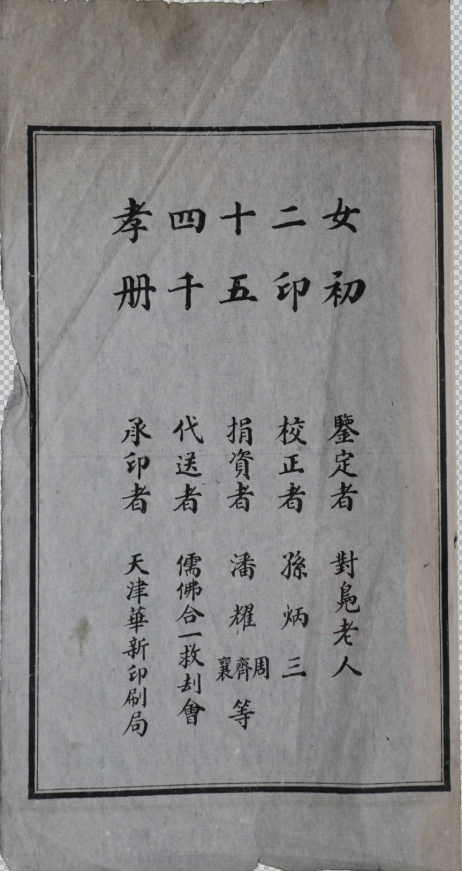 女二十四孝
初印五千册
鑒定者 對鳧老人
校正者 孫炳三
捐資者 潘耀 周齊襄 等
代送者 儒佛合一救刦會
承印者 天津華新印刷局